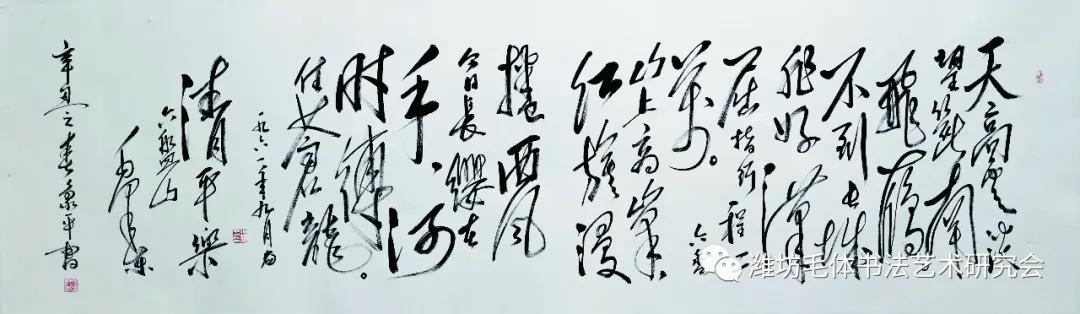 天高云淡
望断南
飛雁
不到长城
非好漢
屈指行程二
萬。六盘
山上高峰
红旗漫
捲西风
今日長缨在
手，何
时缚
住苍龍。
一九六一年九月书
清平樂
六盘山
毛泽东
辛丑之春 平书
潍坊毛体书法艺术研究会